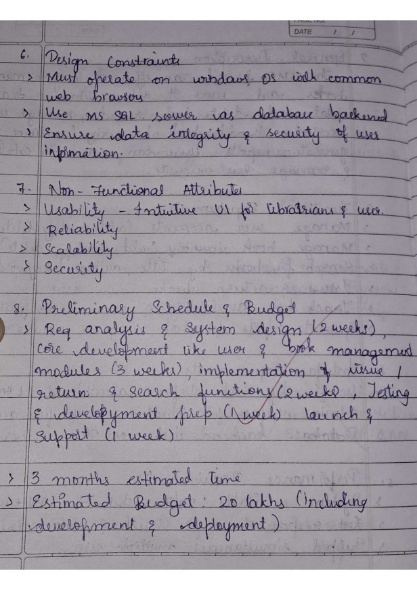 DATE / /
6. Design Constraints
> Must operate on windows OS with common
web browsers
> Use MS SQL server as database backend
> Ensure data integrity & security of user
information.
7. Non-Functional Attributes
> Usability - Intuitive UI for librarians & user.
> Reliability
> Scalability
> Security
8. Preliminary Schedule & Budget
> Req analysis & system design (2 weeks),
core development like user & book management
modules (3 weeks), implementation of issue /
return & search functions (2 weeks), Testing
& development prep (1 week) launch &
support (1 week)
> 3 months estimated time
> Estimated Budget : 20 lakhs (including
development & deployment)